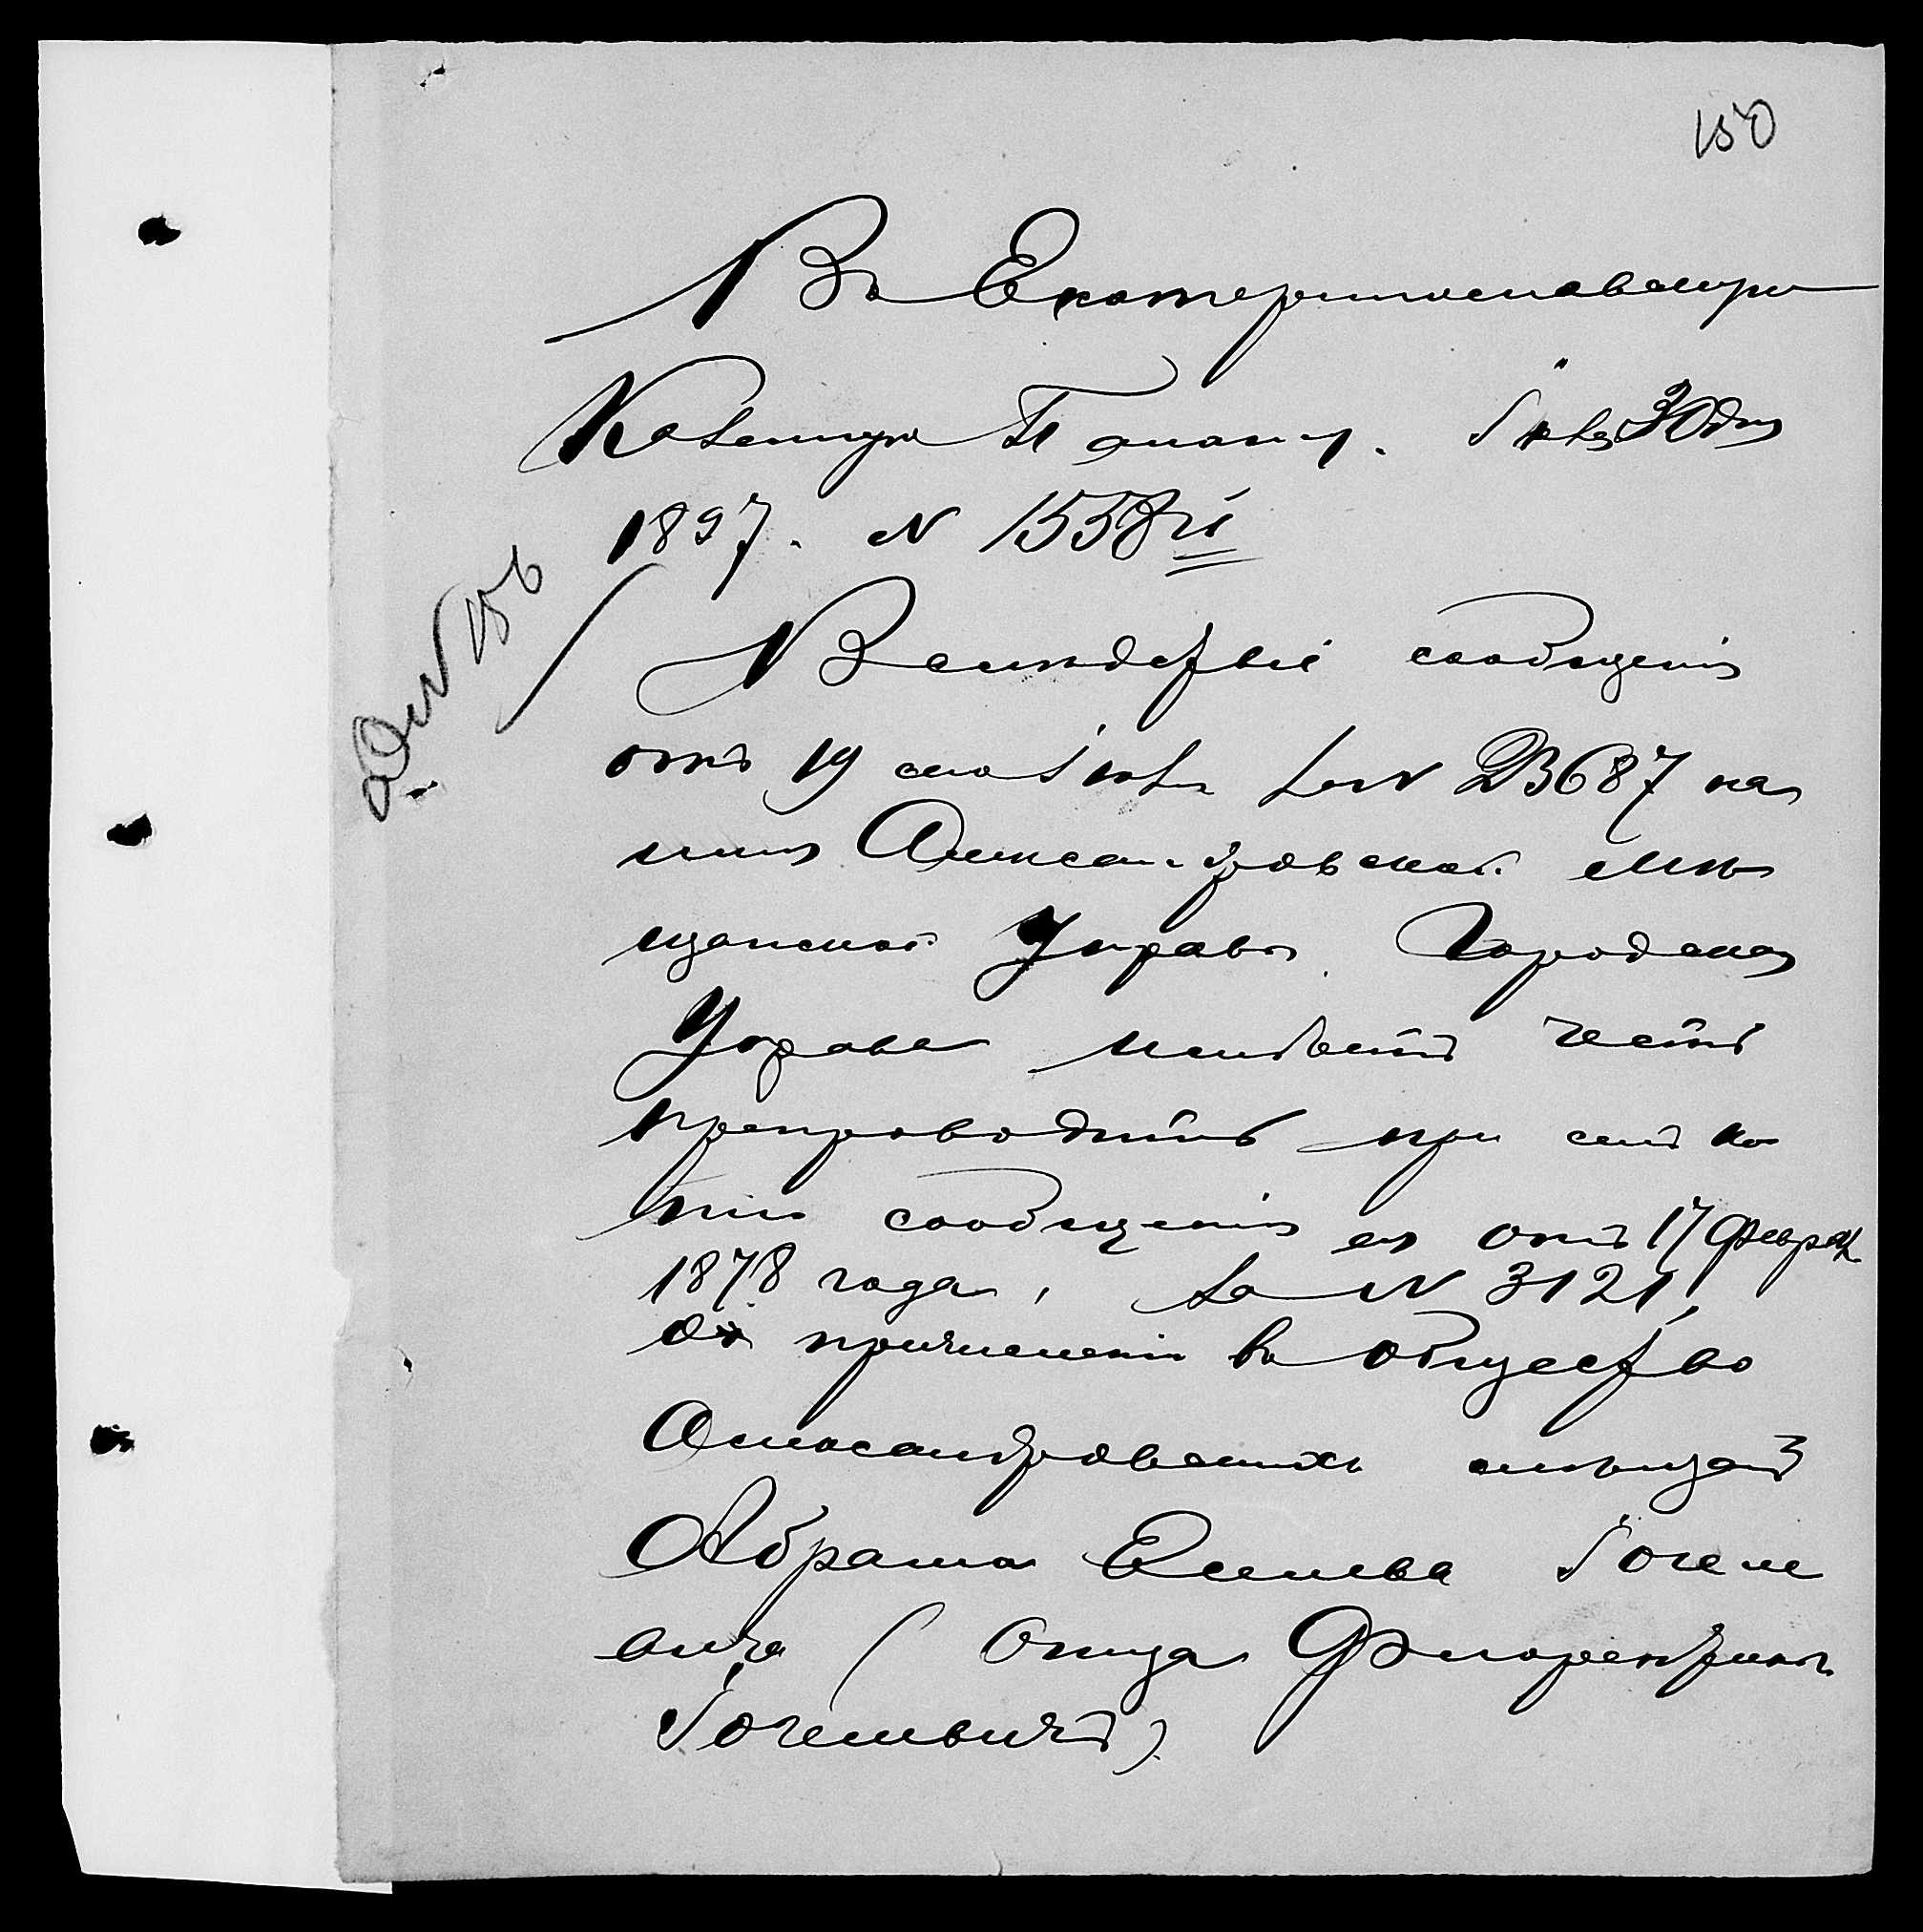 150
Въ Екатеринославскую
Казенную Палату. 30 дня
1897. N 1558
N 156
Вслѣдствіе сообщенія
отъ 19 за N 23687 ка
Александровской Мѣ
щанской Управы Городская
Управа имѣетъ честь
препроводить при семъ ко
пію сообщенія ея отъ 17 Февраля
1878 года, за N 3121,
о причисленіи въ общество
Александровскихъ мѣщанъ
Абрама Евнева
вича (отца Флорентины